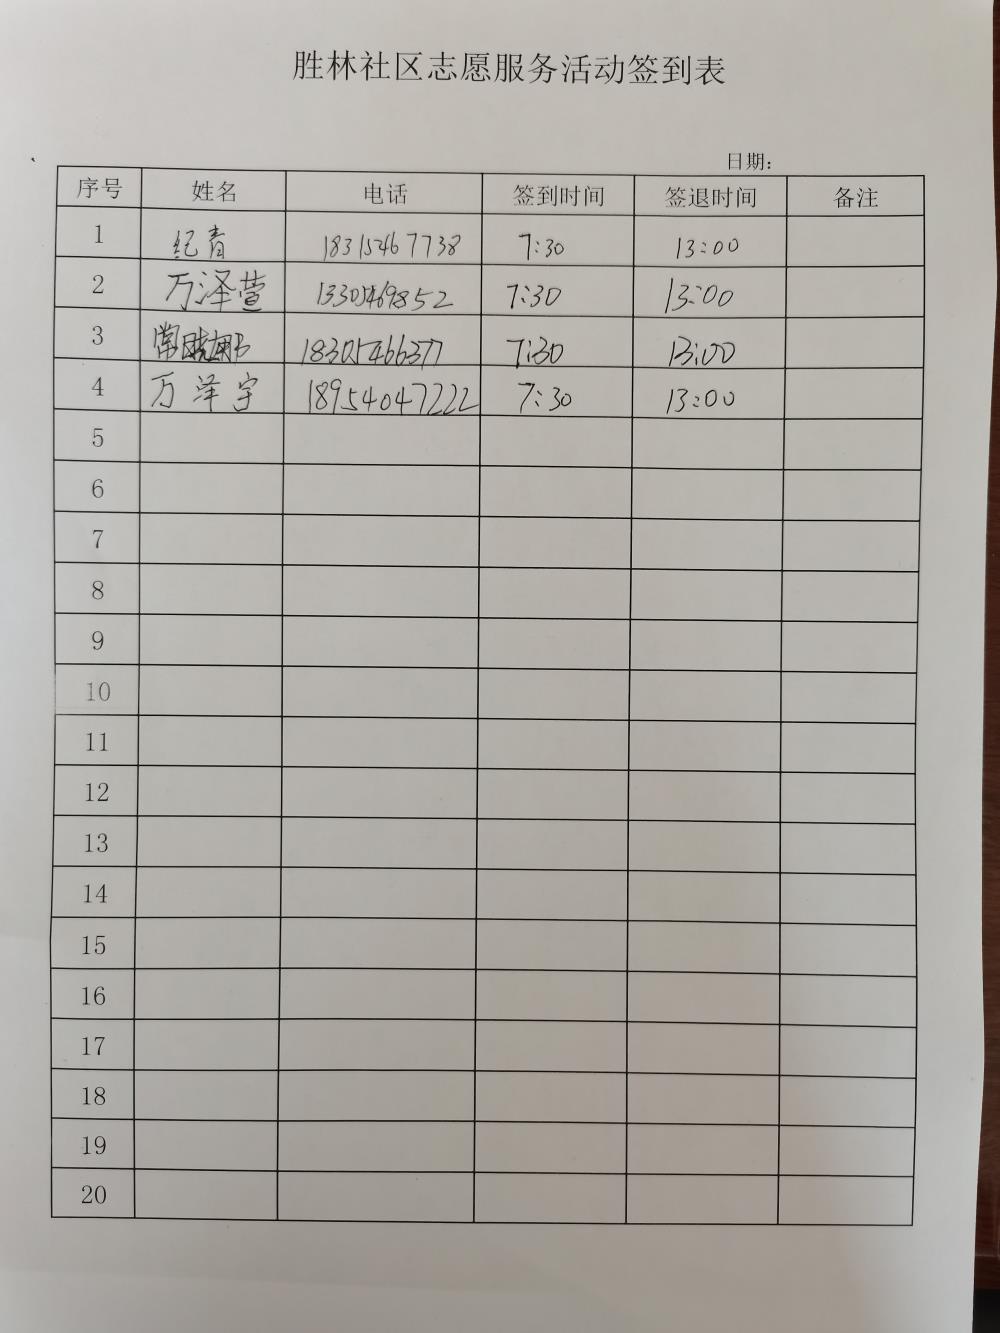 胜林社区志愿服务活动签到表
日期：
序号 姓名 电话 签到时间 签退时间 备注
1 纪青 18315467738 7:30 13:00
2 万泽萱 13305469852 7:30 13:00
3 常 7:30 13:00
4 万泽宇 18954047222 7:30 13:00
5
6
7
8
9
10
11
12
13
14
15
16
17
18
19
20